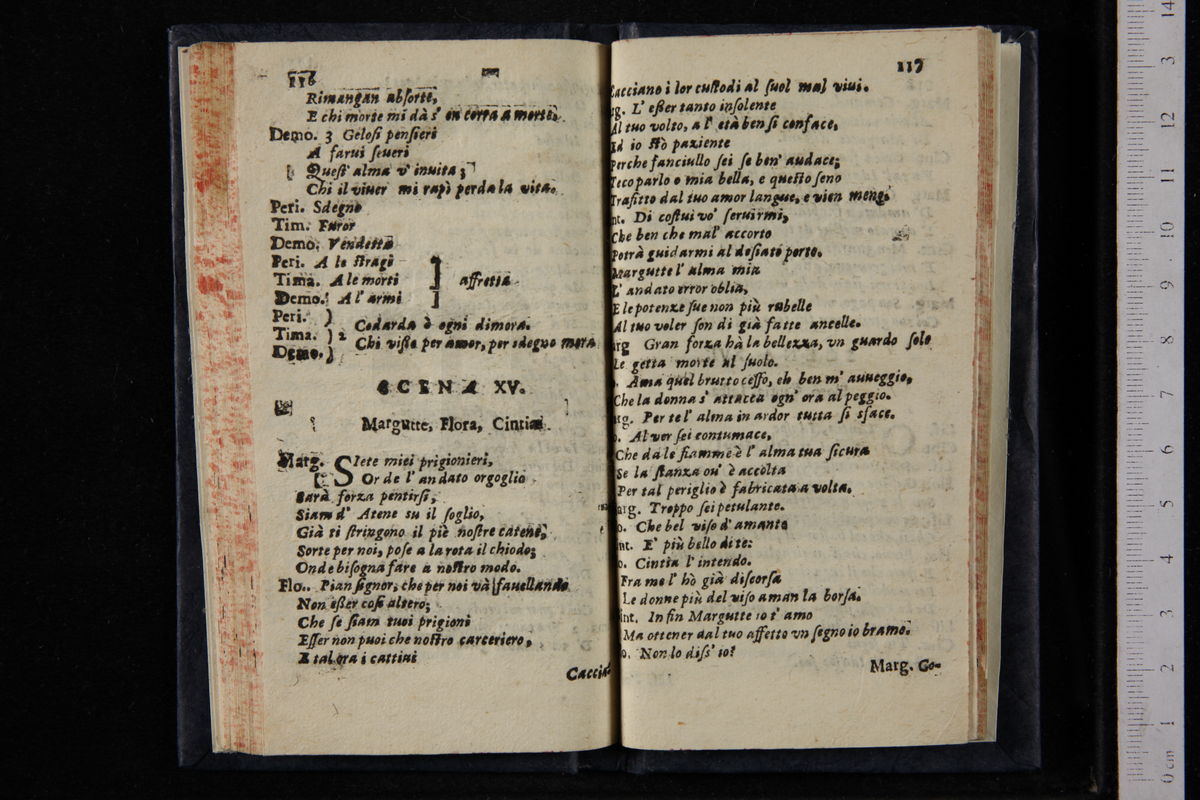 116
Rimangan absorte,
E chi morte mi dà s' en corra a morte.
Demo. 3 Gelosi pensieri
A farui seueri
Quest' alma v' inuita;
Chi il viuer mi rapì perda la vita.
Peri. Sdegno
Tim. Furor
Demo. Vendetta
Peri. A le stragi
Tima. A le morti } affretia
Demo. A l' armi
Peri.
Tima. } 2 Codarda è ogni dimora.
Demo. Chi visse per amor, per sdegno mora
SCENA XV.
Margutte, Flora, Cintia.
Marg. SIete miei prigionieri,
Or de l' andato orgoglio
Sarà forza pentirsi,
Siam d' Atene su il soglio,
Già ti stringono il piè nostre catene,
Sorte per noi, pose a la rota il chiodo;
Onde bisogna fare a nostro modo.
Flo. Pian signor, che per noi và fauellando
Non esser così altero;
Che se siam tuoi prigioni
Esser non puoi che nostro carceriero,
E tal ora i cattiui
Caccia-
117
Cacciano i lor custodi al suol mal viui.
rg. L' esser tanto insolente
Al tuo volto, a l' età ben si conface,
Ed io stò paziente
Perche fanciullo sei se ben' audace;
Teco parlo o mia bella, e questo seno
Trafitto dal tuo amor langue, e vien meno.
nt. Di costui vo' seruirmi,
Che ben che mal' accorto
Potrà guidarmi al desiato porto.
Margutte l' alma mia
L' andato error oblia,
E le potenze sue non più rubelle
Al tuo voler son di già fatte ancelle.
arg Gran forza hà la bellezza, vn guardo solo
Le getta morte al suolo.
o. Ama quel brutto ceffo, eh ben m' auueggio,
Che la donna s' attacca ogn' ora al peggio.
arg. Per te l' alma in ardor tutta si sface.
o. Al ver sei contumace,
Che da le fiamme è l' alma tua sicura
Se la stanza ou' è accolta
Per tal periglio è fabricata a volta.
arg. Troppo sei petulante.
o. Che bel viso d' amante
nt. E' più bello di te:
o. Cintia l' intendo.
Fra me l' hò già discorsa
Le donne più del viso aman la borsa.
int. In fin Margutte io t' amo
Ma ottener dal tuo affetto vn segno io bramo.
o. Non lo diss' io?
Marg. Go-